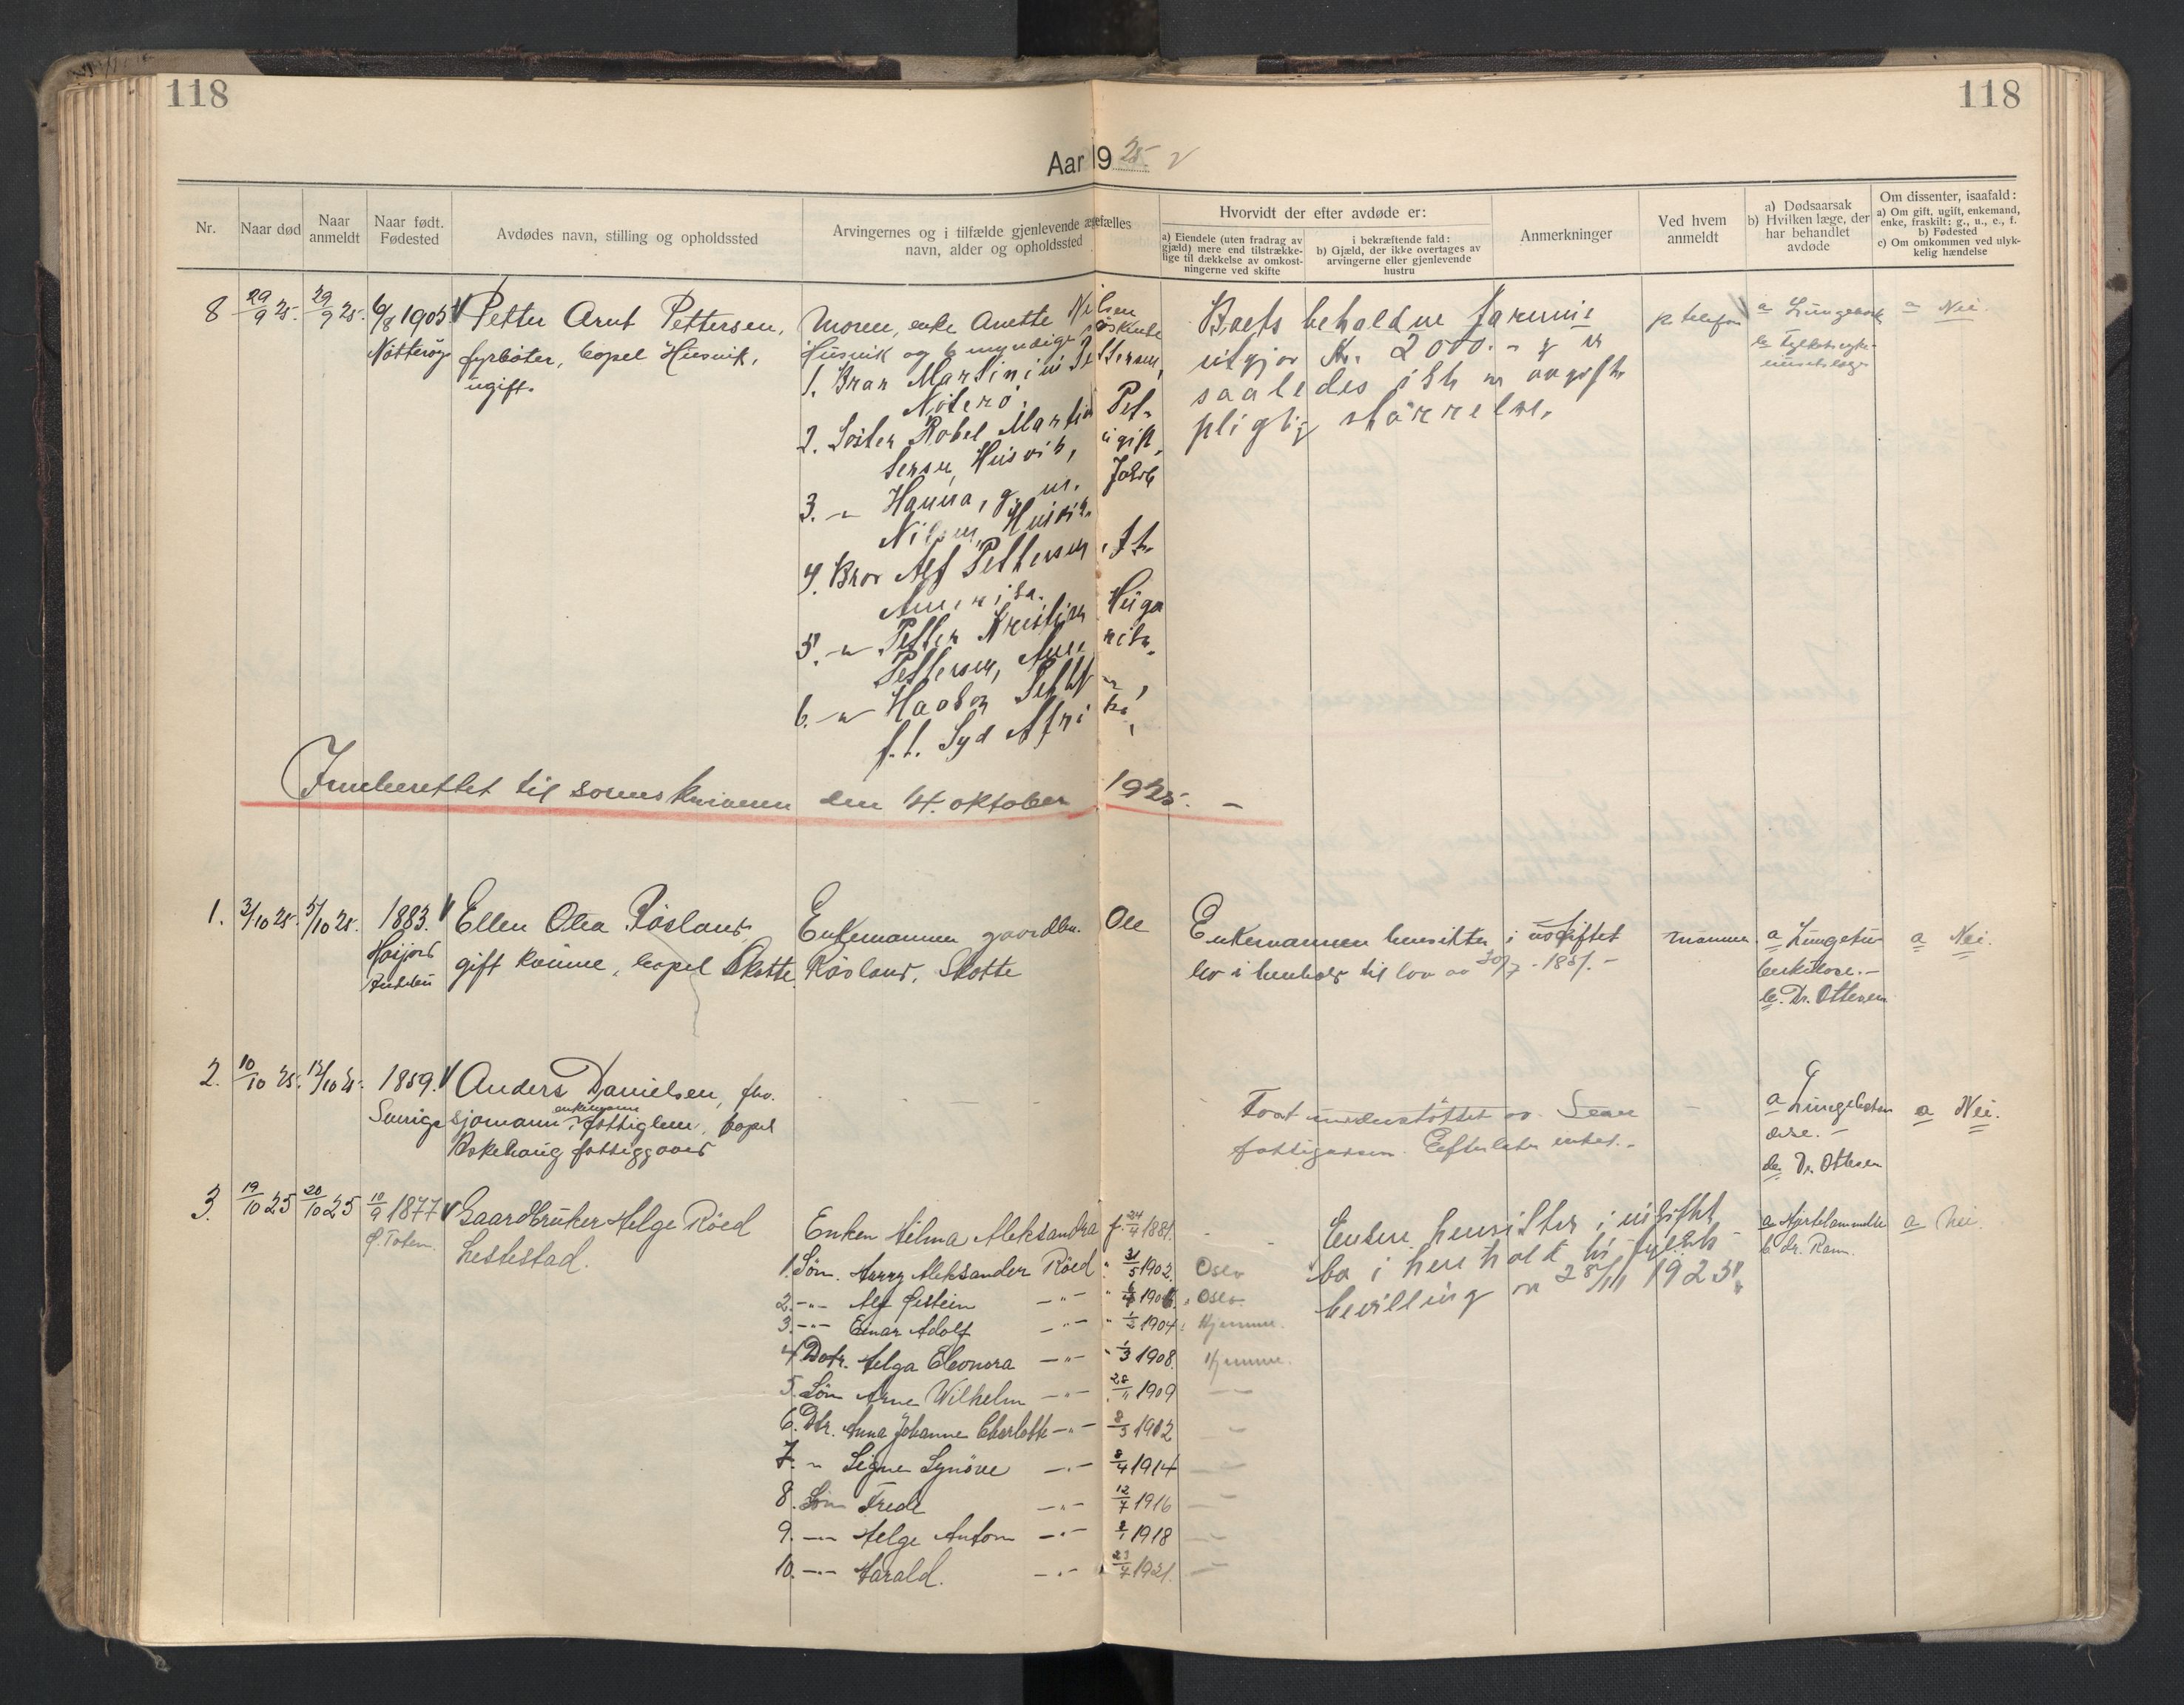 118
118
Aar 1925.
Nr.
Naar død
Naar anmeldt
Naar født. Fødested
Avdødes navn, stilling og opholdssted
Arvingernes og i tilfælde gjenlevende ægtefælles navn, alder og opholdssted
Hvorvidt der efter avdøde er:
a) Eiendele (uten fradrag av gjæld) mere end tilstrækkelige til dækkelse av omkostningerne ved skifte
i bekræftende fald: b) Gjæld, der ikke overtages av arvingerne eller gjenlevende hustru
Anmerkninger
Ved hvem anmeldt
a) Dødsaarsak b) Hvilken læge, der har behandlet avdøde
Om dissenter, isaafald: a) Om gift, ugift, enkemand, enke, fraskilt: g., u., e., f. b) Fødested c) Om omkommen ved ulykkelig hændelse
8 29/9 25. 29/9 25. 6/8 1905 Petter Arnt Pettersen,
Nøtterøy fyrbøter, bopel Husvik,
ugift.
Moren, enke Anette Nilsen
Husvik og 6 myndige søskende
1. Bror Martinius Pettersen,
Nøterø.
2. Søster Robel Martin Pet-
tersen, Husvik, ugift,
3. -"- Hanna, g. m. Jakob
Nilsen, Husvik.
4. Bror Alf Pettersen, f. t.
Amerika.
5. -"- Petter Kristian Hugo
Pettersen, Amerika.
6. -"- Haakon Petters.,
f. t. Syd Afrika,
Boets behaldne formue
utgjør Kr. 2000.- og er
saaledes ikke av avgifts-
pligtig størrelse.
pr. telefon
a Lungebet.
b Fylkessyke-
huset
a Nei
Innberettet til sorenskriveren den 4. oktober 1925. -
1. 3/10 25. 5/10 25. 1883. Ellen Olea Røsland
Høijord gift kvinne, bopel Skotte.
Andebu
Enkemannen gaardbr. Ole
Røsland, Skotte
Enkemannen hensitter i uskiftet
bo i henhold til lov av 30/7 - 1851. -
mannen.
a Lungetu-
berkulose. -
b. Dr. Ottesen
a Nei.
2. 10/10 25. 12/10 25. 1859. Anders Danielsen, fhv.
Sverige sjømann, enkemann fattiglem, bopel
Askehaug fattiggaard
Fast understøttet av Sem
fattigvesen. Efterlater intet. -
a Lungebeten-
delse. -
b. Dr. Ottesen
a Nei.
3. 19/10 25 20/10 25 10/9 1877 Gaardbruker Helge Röed
Ø. Toten. Lestestad.
Enken Hilma Aleksandra f. 24/4 1881.
1. Sön. Harry Aleksander Röed " 31/5 1902. Oslo
2. -"- Alf Østein -"- " 1906. " Oslo.
3. -"- Einar Adolf -"- " 1904. Hjemme.
4 Datr. Helga Eleonora -"- " 1/3 1908. Hjemme.
5. Sön Arne Wilhelm -"- 28/11 1909 -"-
6. Dtr. Anna Johanne Charlotte -"- 8/3 1912 -"-
7. -"- Signe Synöve -"- 8/4 1914 -"-
8. Sön Frede -"- 12/7 1916 -"-
9. -"- Helge Anton -"- 2/1 1918 -"-
10. -"- Harald. -"- 23/7 1921. -"-
Enken hensitter i uskiftet
bo i henhold til fylkets
bevilling av 28/11 1925.
a. Hjertelammelse
b dr. Ram.
a Nei.